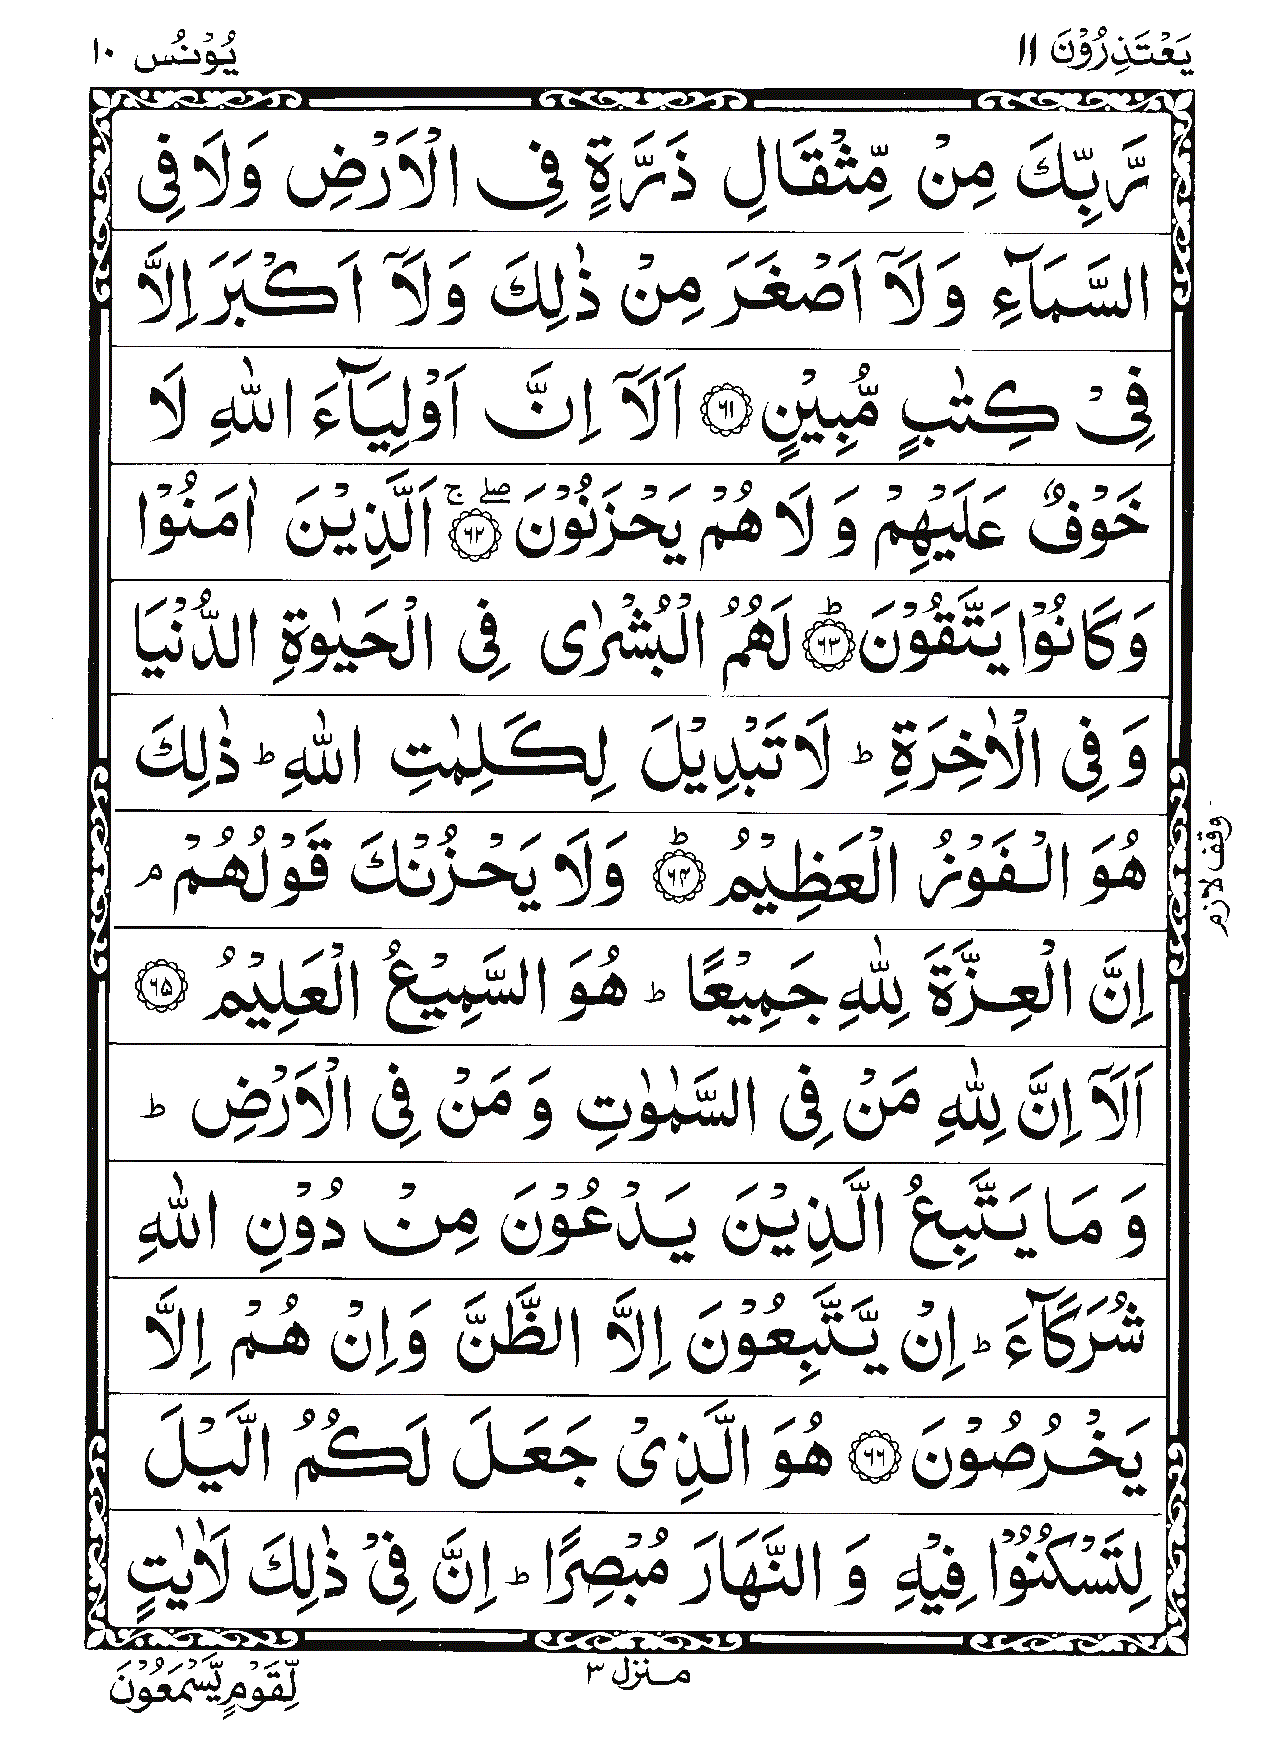 يَعْتَذِرُوْنَ ۱۱
يُوْنُس ۱۰
رَّبِّكَ مِنْ مِّثْقَالِ ذَرَّةٍ فِى الْاَرْضِ وَلَا فِى
السَّمَآءِ وَلَآ اَصْغَرَ مِنْ ذٰلِكَ وَلَآ اَكْبَرَ اِلَّا
فِىْ كِتٰبٍ مُّبِيْنٍ ۝۶۱ اَلَآ اِنَّ اَوْلِيَآءَ اللّٰهِ لَا
خَوْفٌ عَلَيْهِمْ وَ لَا هُمْ يَحْزَنُوْنَ ۝۶۲ ۖ ۚ اَلَّذِيْنَ اٰمَنُوْا
وَكَانُوْا يَتَّقُوْنَ ۝۶۳ؕ لَهُمُ الْبُشْرٰى فِى الْحَيٰوةِ الدُّنْيَا
وَ فِى الْاٰخِرَةِ ؕ لَا تَبْدِيْلَ لِكَلِمٰتِ اللّٰهِ ؕ ذٰلِكَ
هُوَ الْفَوْزُ الْعَظِيْمُ ۝۶۴ؕ وَلَا يَحْزُنْكَ قَوْلُهُمْ ۘ
وقف لازم
اِنَّ الْعِزَّةَ لِلّٰهِ جَمِيْعًا ؕ هُوَ السَّمِيْعُ الْعَلِيْمُ ۝۶۵
اَلَآ اِنَّ لِلّٰهِ مَنْ فِى السَّمٰوٰتِ وَ مَنْ فِى الْاَرْضِ ؕ
وَ مَا يَتَّبِعُ الَّذِيْنَ يَدْعُوْنَ مِنْ دُوْنِ اللّٰهِ
شُرَكَآءَ ؕ اِنْ يَّتَّبِعُوْنَ اِلَّا الظَّنَّ وَاِنْ هُمْ اِلَّا
يَخْرُصُوْنَ ۝۶۶ هُوَ الَّذِىْ جَعَلَ لَكُمُ الَّيْلَ
لِتَسْكُنُوْا فِيْهِ وَ النَّهَارَ مُبْصِرًا ؕ اِنَّ فِىْ ذٰلِكَ لَاٰيٰتٍ
منزل ۳
لِّقَوْمٍ يَّسْمَعُوْنَ